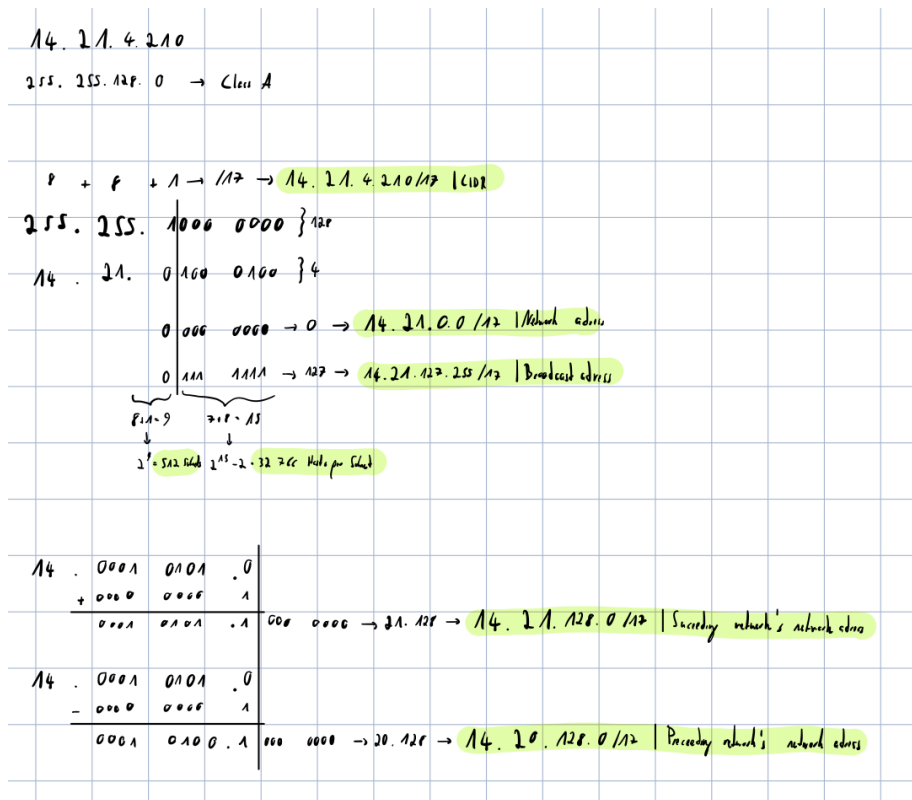 14. 21. 4. 210
255. 255. 128. 0 → Class A
8 + 8 + 1 → /17 → 14. 21. 4. 210/17 | CIDR
255. 255. 1000 0000 } 128
14 . 21. 0 100 0100 } 4
0 000 0000 → 0 → 14. 21. 0. 0 /17 | Network adress
0 111 1111 → 127 → 14. 21. 127. 255 /17 | Broadcast adress
8+1=9 7+8=15
↓ ↓
2⁹ = 512 2¹⁵-2 = 32 766 Hosts per Subnet
14 . 0001 0101 .0
+ 0000 0000 1
0001 0101 .1 000 0000 → 21. 128 → 14. 21. 128. 0 /17 | Succeeding network's network adress
14 . 0001 0101 .0
- 0000 0000 1
0001 0100 . 1 000 0000 → 20. 128 → 14. 20. 128. 0 /17 | Preceeding network's network adress